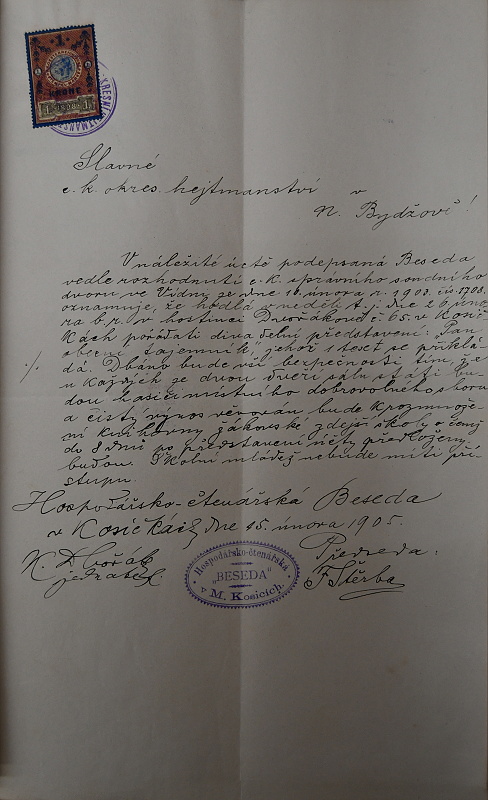 1
KRONE
1 1898 1
Slavné
c. k. okres. hejtmanství v
N. Bydžově!
V náležité úctě podepsaná Beseda
vedle rozhodnutí c. k. správního soudního
dvoru ve Vídny ze dne 16. února r. 1903. čís 1908.
oznamuje, že hodlá v neděli t. j. dne 26 úno-
ra b. r. v hostinci Dvořákově č. 65. v Kosič
kách pořádati divadelní představení: Pan
obecní tajemník, jehož 1 text se přiklá-
./. dá. Dbáno bude vší bezpečnosti tím, že
u každých ze dvou dveří sálu státi bu-
dou hasiči místního dobrovolného sboru
a čistý výnos věnován bude k rozmnože-
ní knihovny žákovské zdejší školy o čemž
do 8 dnů po představení účty předloženy
budou. Školní mládež nebude míti pří-
stupu.
Hospodářsko-čtenářská Beseda
v Kosičkách dne 15. února 1905.
K. Dvořák
jednatel.
Předseda:
F Štěrba
Hospodářsko-čtenářská
"BESEDA"
v M. Kosicích.